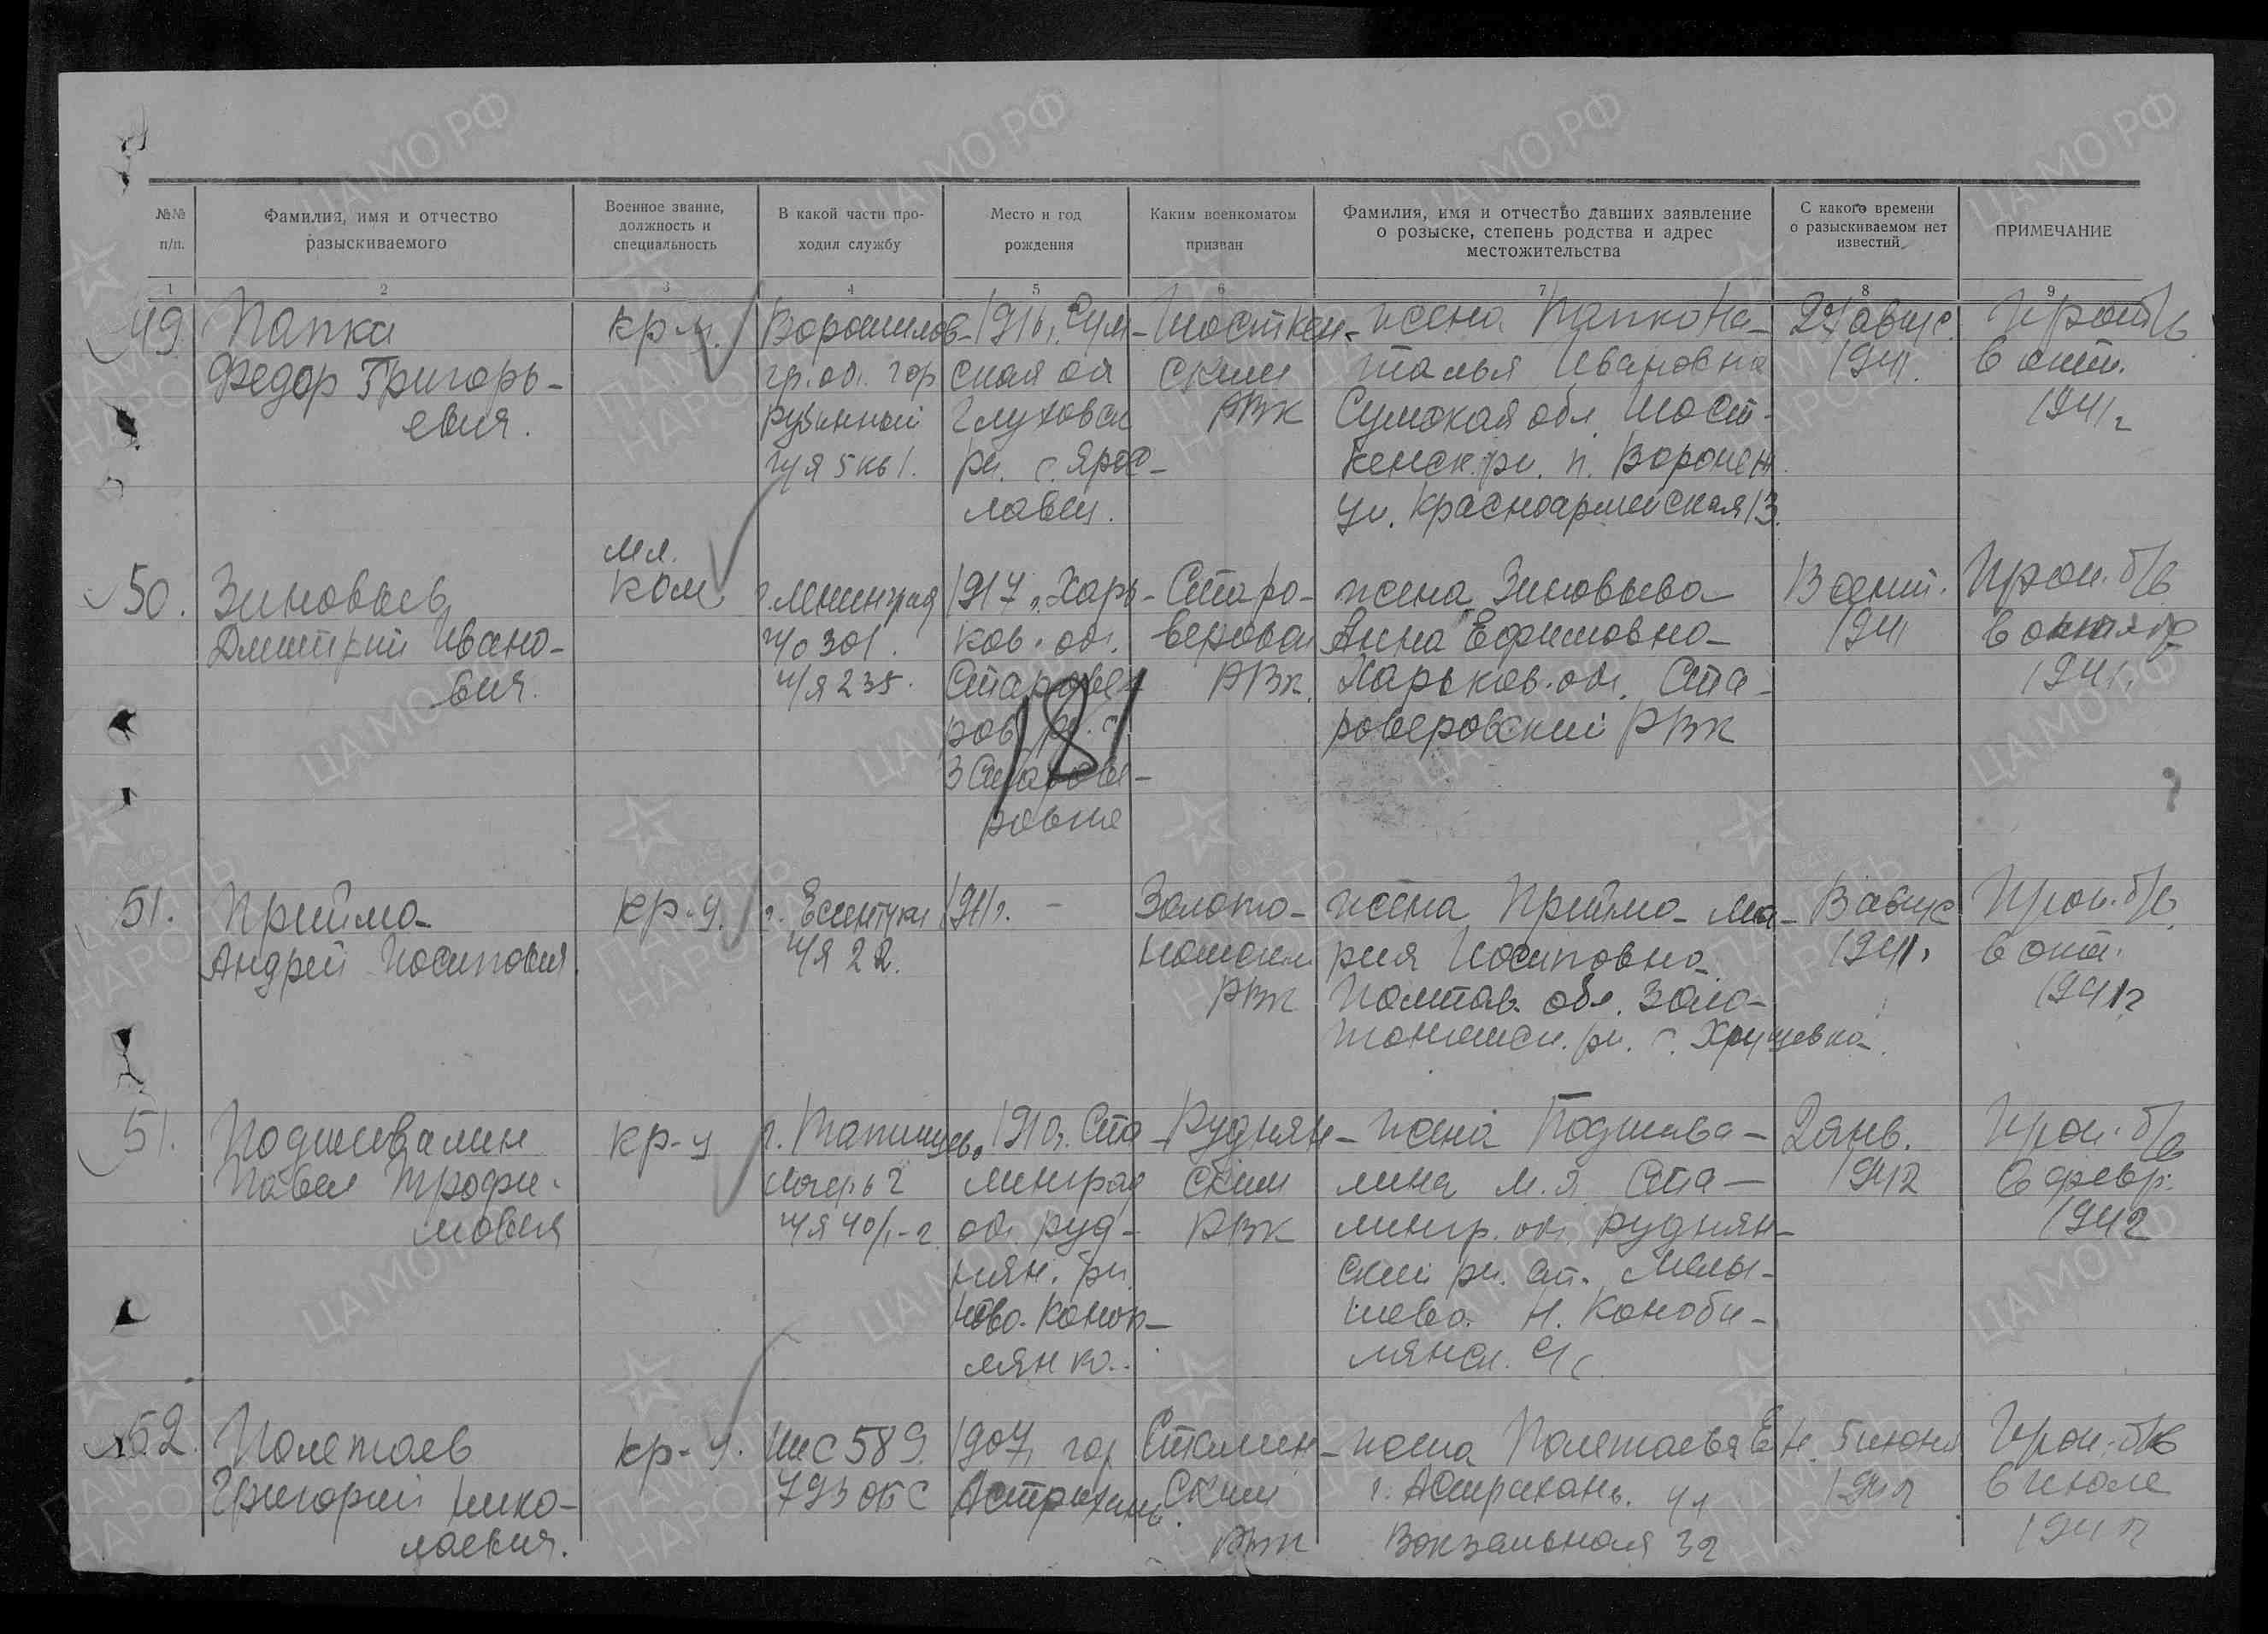 №№ п/п.
Фамилия, имя и отчество разыскиваемого
Военное звание, должность и специальность
В какой части проходил службу
Место и год рождения
Каким военкоматом призван
Фамилия, имя и отчество давших заявление о розыске, степень родства и адрес местожительства
С какого времени о разыскиваемом нет известий
ПРИМЕЧАНИЕ
1 2 3 4 5 6 7 8 9
49
Папка
Федор Григорь-
евич.
кр-ц.
Ворошилов-
гр. об. гор
Рубежной
п/я 5 кв 1.
1916, Сум-
ская об
Глуховск
рн. с. Яро-
славец.
Шосткен-
ским
РВК
жена Папко На-
талья Ивановна
Сумская обл. Шост-
кенск. рн. п. Воронеж
ул. Красноармейская 13.
27 авгус.
1941.
Проп. б/в
в окт.
1941 г
50.
Зиновьев
Дмитрий Ивано-
вич.
мл.
ком
г. Ленинград
п/о 301.
п/я 235.
1917, Харь-
ков. об.
Старове-
ров. рн. с.
3 Старове-
ровка
181
Старо-
веровск
РВК.
жена Зиновьева
Анна Ефимовна
Харьков. об. Ста-
роверовский РВК
В сент.
1941
Проп. б/в
в октябр
1941.
51.
Прийма
Андрей Иосипович
кр-ц.
г. Есентуки
п/я 22.
1911 г. -
Золото-
ношским
РВК
жена Прийма Ма-
рия Иосиповна
Полтав. обл. Золо-
тоношск. рн. с. Хрущевка.
В авгус
1941.
Проп. б/в
в окт.
1941 г
51.
Подшивалин
Павел Трофи-
мович
кр-ц
г. Татищево
лагерь 2
п/я 40/1-2
1910, Ста-
линград
об. Руд-
нян. рн
Ново-Коноп-
лянка.
Руднян-
ским
РВК
жена Подшива-
лина М. Я. Ста-
лингр. об. Руднян-
ский рн. ст. Мелы-
шева. Н. Коноби-
лянск. с/с
2 янв.
1942
Проп. б/в
в февр.
1942
52.
Полетаев
Григорий Нико-
лаевич.
кр-ц.
ппс 589
793 ОБС
1907, гор
Астрахань.
Сталин-
ским
РВК
жена Полетаева Е. Н.
г. Астрахань. ул
Вокзальная 32
5 июня
Проп. б/в
в июле
ЦА МО РФ
ПАМЯТЬ НАРОДА